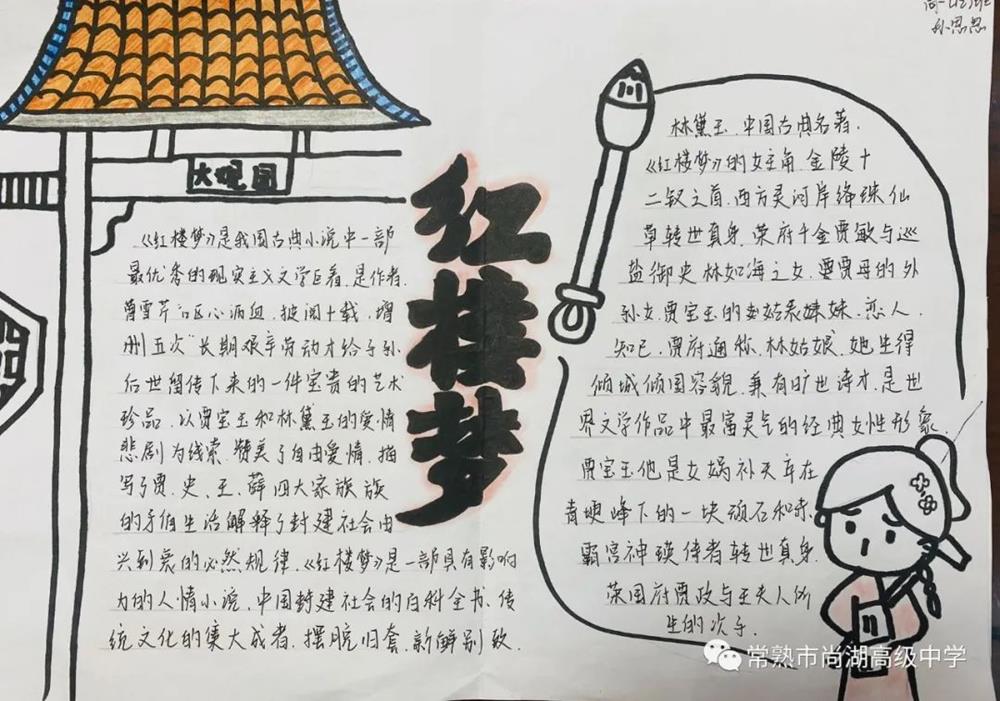 孙思思
大观园
红楼梦
《红楼梦》是我国古典小说中一部
最优秀的现实主义文学巨著.是作者.
曹雪芹"呕心沥血.披阅十载.增
删五次"长期艰辛劳动才给子孙
后世留传下来的一件宝贵的艺术
珍品.以贾宝玉和林黛玉的爱情
悲剧为线索.赞美了自由爱情.描
写了贾.史.王.薛四大家族族
的矛盾生活解释了封建社会由
兴到衰的必然规律.《红楼梦》是一部具有影响
力的人情小说.中国封建社会的百科全书.传
统文化的集大成者.摆脱旧套.新鲜别致.
林黛玉.中国古典名著.
《红楼梦》的女主角.金陵十
二钗之首.西方灵河岸绛珠仙
草转世真身.荣府千金贾敏与巡
盐御史林如海之女.贾母的外
孙女.贾宝玉的姑表妹妹.恋人.
知己.贾府通称.林姑娘.她生得
倾城倾国容貌.兼有旷世诗才.是世
界文学作品中最富灵气的经典女性形象.
贾宝玉他是女娲补天弃在
青埂峰下的一块顽石和赤
霸宫神瑛侍者转世真身.
荣国府贾政与王夫人所
生的次子.
常熟市尚湖高级中学